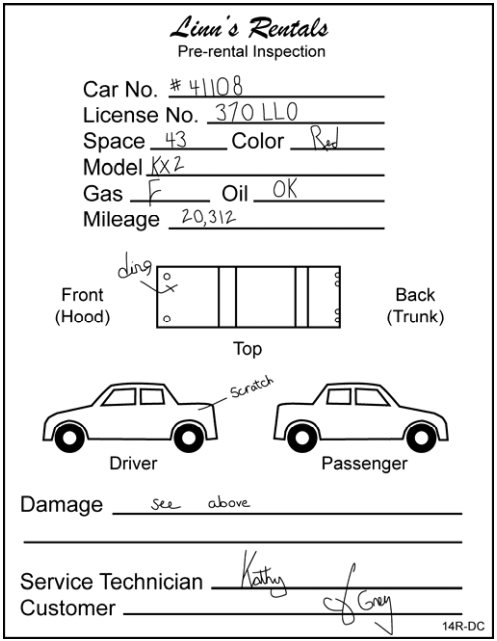 Linn's Rentals
Pre-rental Inspection
Car No. # 41108
License No. 370 LLO
Space 43 Color Red
Model KX2
Gas F Oil OK
Mileage 20,312
ding
Front
(Hood)
Back
(Trunk)
Top
scratch
Driver
Passenger
Damage see above
Service Technician Kathy
Customer J Grey
14R-DC